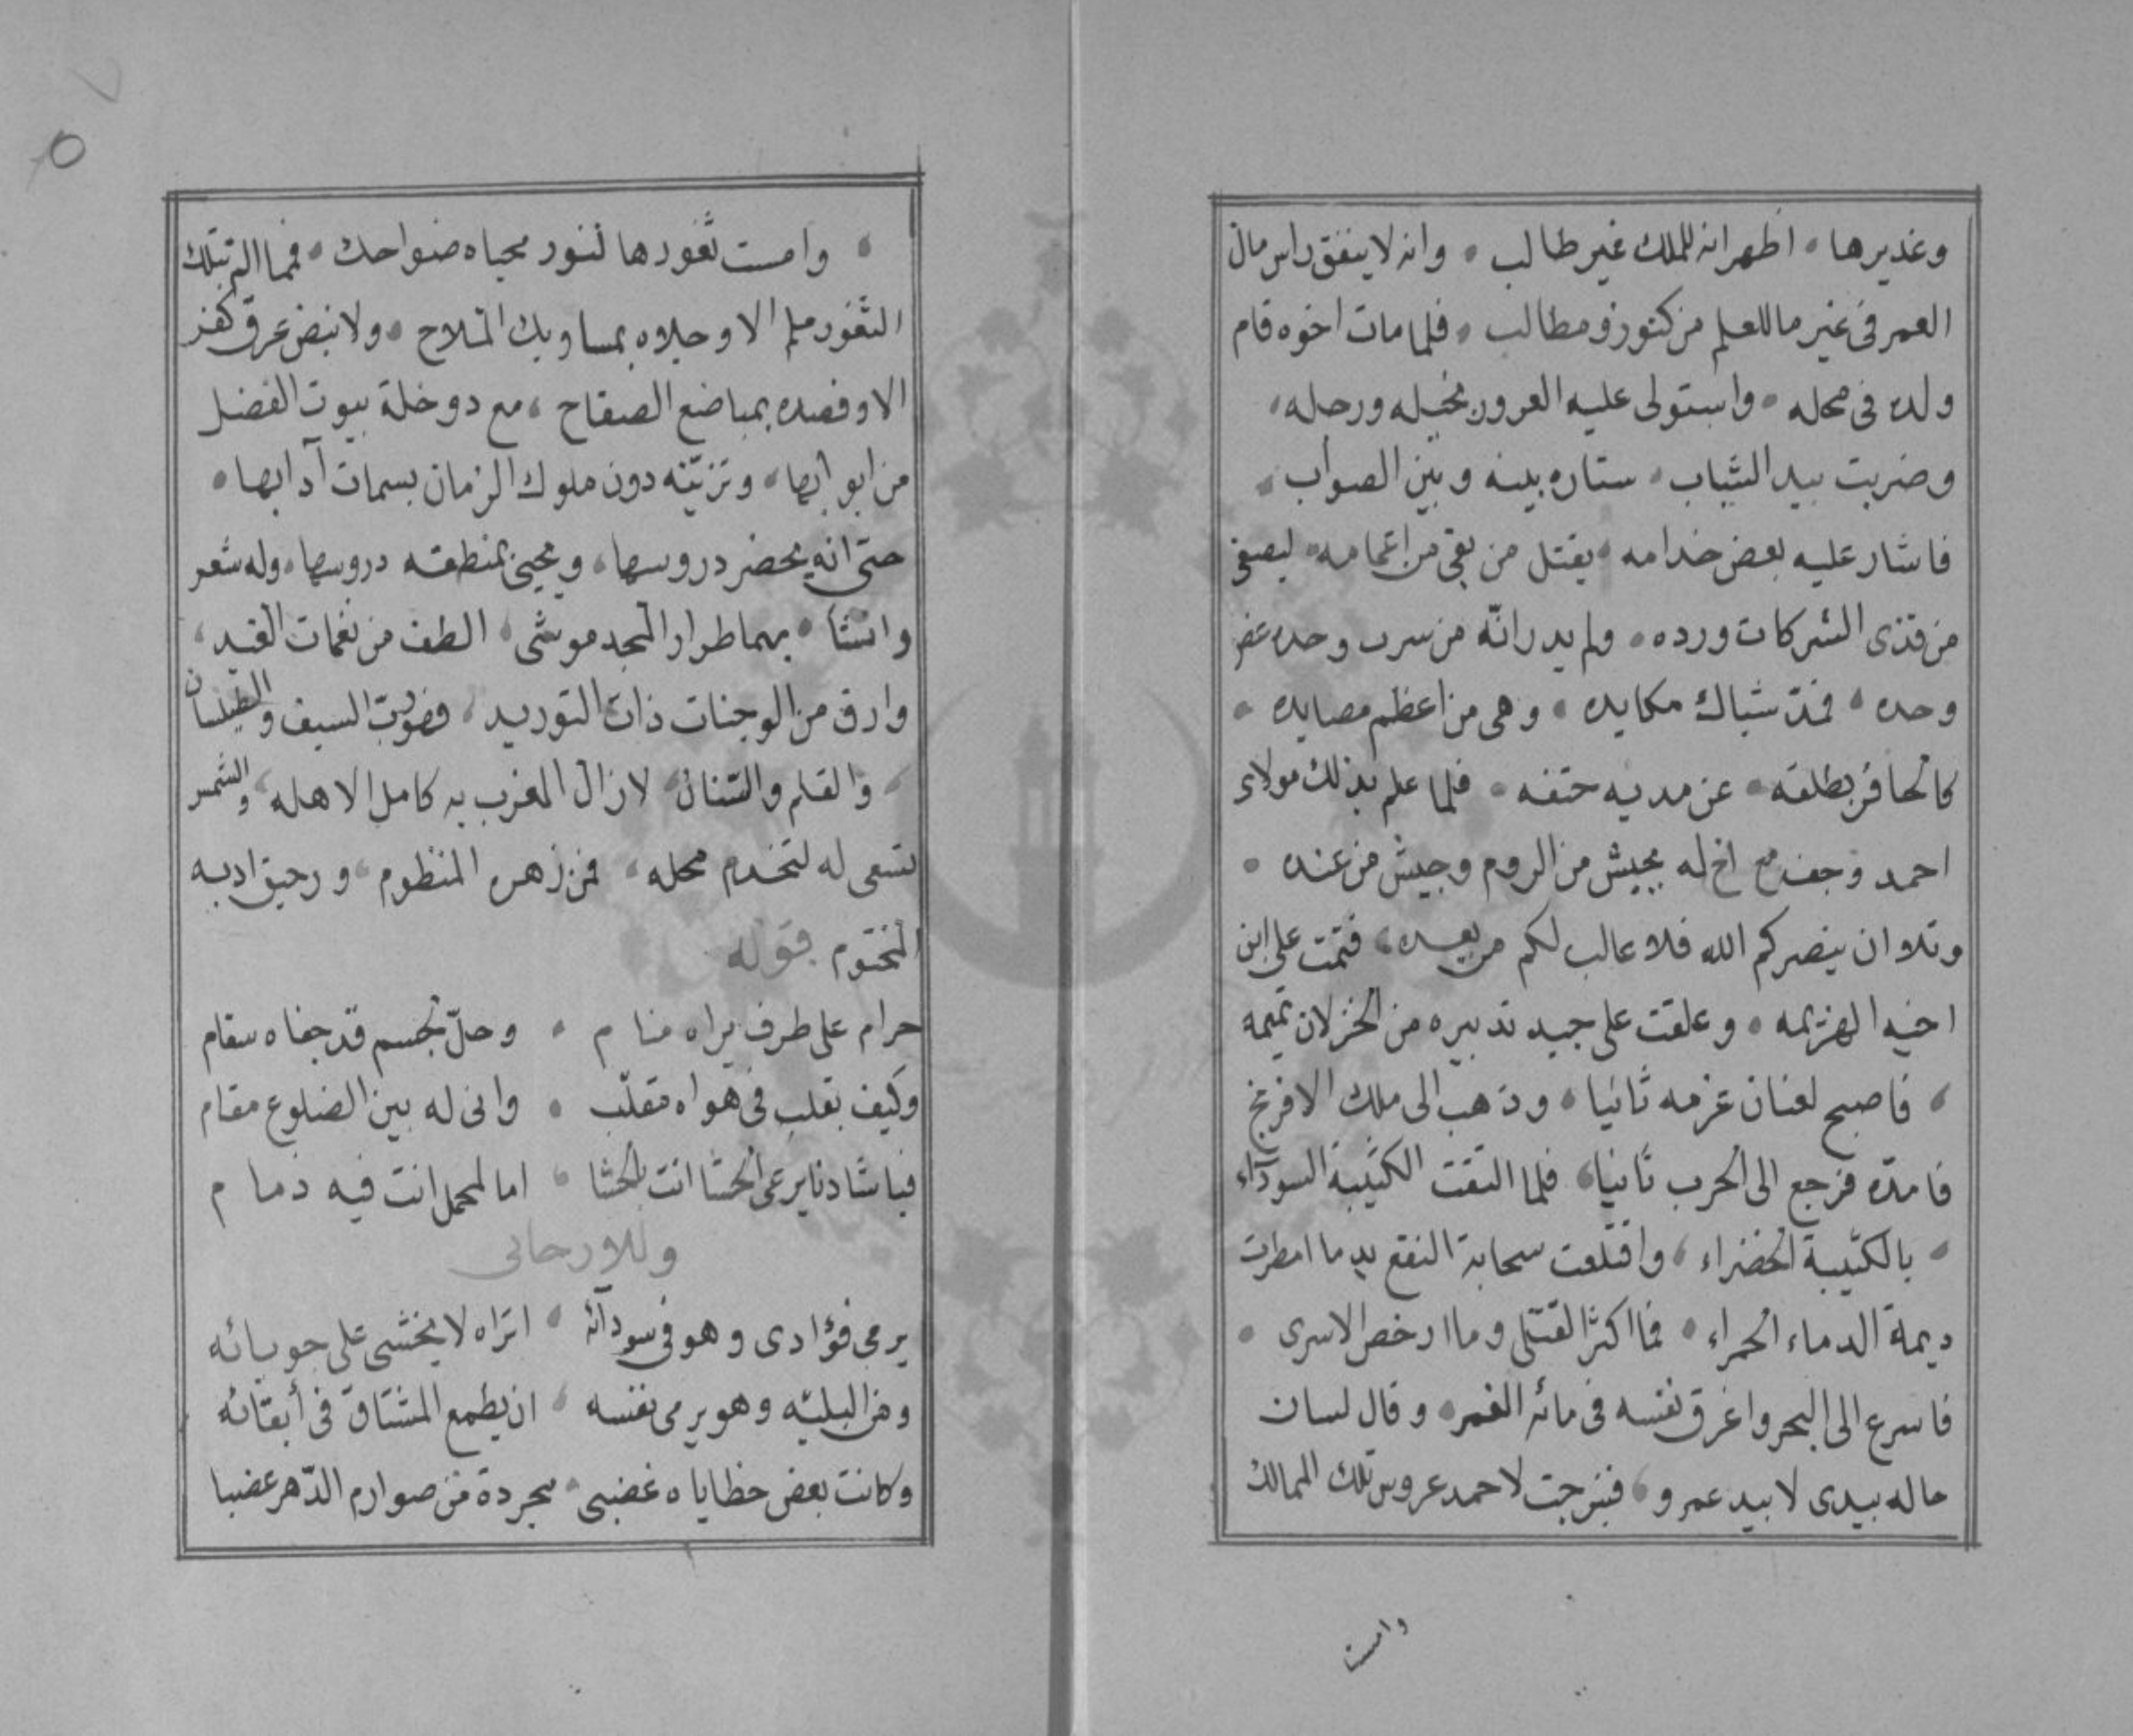 وغديرها، اظهر انه للملك غير طالب، وانه لا ينفق راس مال
العمر فى غير ما للعلم من كنوز ومطالب، فلما مات اخوه قام
ولده فى محله، واستولى عليه الغرور بخيله ورجله،
وضربت بيد الشباب، ستاره بينه وبين الصواب،
فاشار عليه بعض خدامه، بقتل من بقى من اعمامه، ليصفى
من قذى الشركات ورده، ولم يدر انّه من سرب وحده غص
وحده، فمدّ شباك مكايده، وهى من اعظم مصايده،
كالحافر بظلفه، عن مديه حتفه، فلما علم بذلك مولاى
احمد وجف مع اخ له بجيش من الروم وجيش من عنده،
وتلا وان ينصركم الله فلا غالب لكم من بعده، فتمت على ابن
اخيه الهزيمه، وعلقت على جيد تدبيره من الخزلان تميمه
، فاصبح لعنان عزمه ثانيا، وذهب الى ملك الافرنج
فامدّه فرجع الى الحرب ثانيا، فلما التقت الكتيبة السودآء
، بالكتيبة الخضراء، واقتلعت سحابة النقع بعد ما امطرت
ديمة الدماء الحمراء، فما اكثر القتلى وما ارخص الاسرى،
فاسرع الى البحر واغرق نفسه فى مائه الغمر، وقال لسان
حاله بيدى لا بيد عمرو، فتبرجت لاحمد عروس تلك الممالك
وامست
، وامست ثغورها لنور محياه ضواحك، فما الم بتلك
الثغور ملم الا وجلاه بمساويك السلاح، ولا نبض عرق كفر
الا وفصده بمباضع الصفاح، مع دوخلة بيوت الفضل
من ابوابها، وتزيّنه دون ملوك الزمان بسمات آدابها،
حتى انه يحضر دروسها، ويحيى بمنطقه دروسها، وله شعر
وانشا، بهما طراز المجد موشى، الطف من نغمات الغيد،
وارق من الوجنات ذات التوريد، فهو ربّ السيف والطيلسان
، والقلم والسّنان، لازال المغرب به كامل الاهله، والشمس
تسعى له لتخدم محله، فمن زهره المنظوم، ورحيق ادبه
المختوم قوله
حرام على طرف يراه منام ، وحلّ لجسم قد جفاه سقام
وكيف بقلب فى هواه مقلّب ، وانى له بين الضلوع مقام
فيا شادنا يرعى الحشا انت بالحشا ، اما لمحل انت فيه ذمام
وللارجانى
يرمى فؤادى وهو فى سودآئه ، اتراه لا يخشى على حوبائه
ومن البليّه وهو يرمى نفسه ، ان يطمع المشتاق فى أبقائه
وكانت بعض حظاياه غضبى، مجردة من صوارم الدّهر عضبا